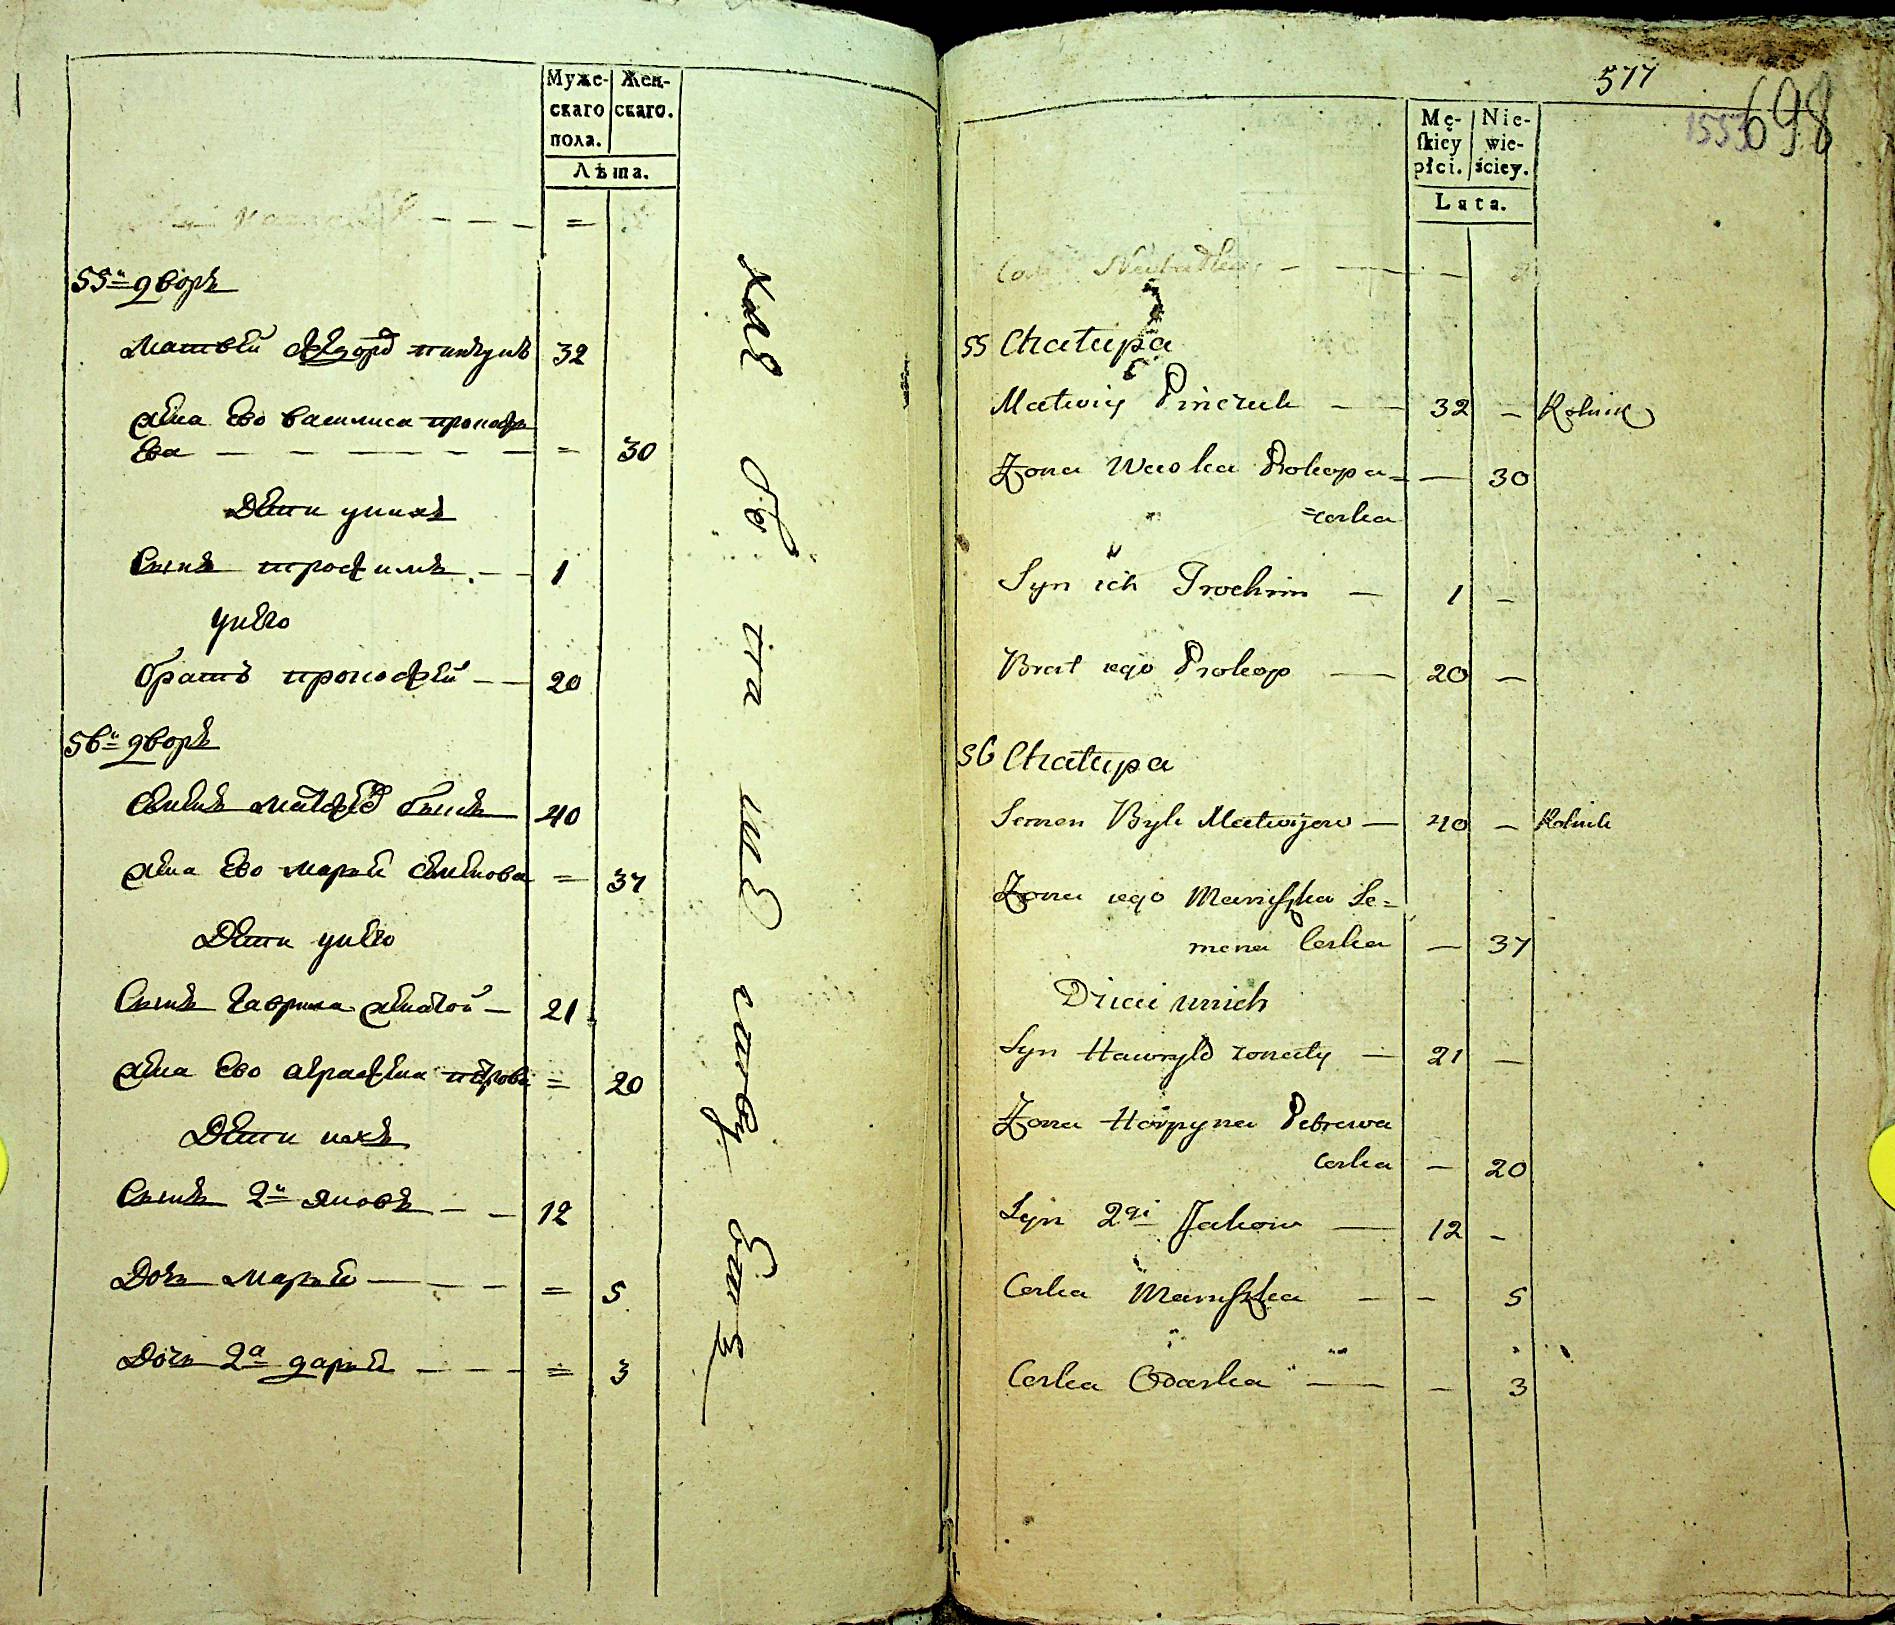 Муже-
скаго
пола.
Жен-
скаго.
Лѣта.
55й дворъ
Матвѣй Ѳедоро пинчукъ 32
жена Ево василиса прокофь
Ева — — — — — — = 30
Дети унихъ
Сынъ трофимъ. — — 1
унего
братъ прокофей — — 20
56й дворъ
Семенъ быкъ 40
жена Ево марья семенова = 37
Дети унего
Сынъ Гаврила женатой — 21
жена Ево аграфена петрова = 20
Дети ихъ
Сынъ 2й яковъ — — 12
Дочь марья — — — = 5
Дочь 2а дарья — — — = 3
577
1553
698
Mę-
skiey
płci.
Nie-
wie-
ściey.
Lata.
55 Chałupa
Matwiy Pinczuk — — 32 — Rolnik
Zona Waska Prokopa= — 30
=corka
Syn ich Trochim — 1 —
Brat iego Prokop — 20 —
56 Chałupa
Semen Byk Matwijow — 40 — Rolnik
Zona iego Maruszka Se=
mena Corka — 37
Dzieci unich
Syn Hawryło zonaty — 21 —
Zona Horpyna Petrowa
Corka — 20
Syn 2gi Jakow — 12 —
Corka Maruszka — — 5
Corka Odarka — — 3